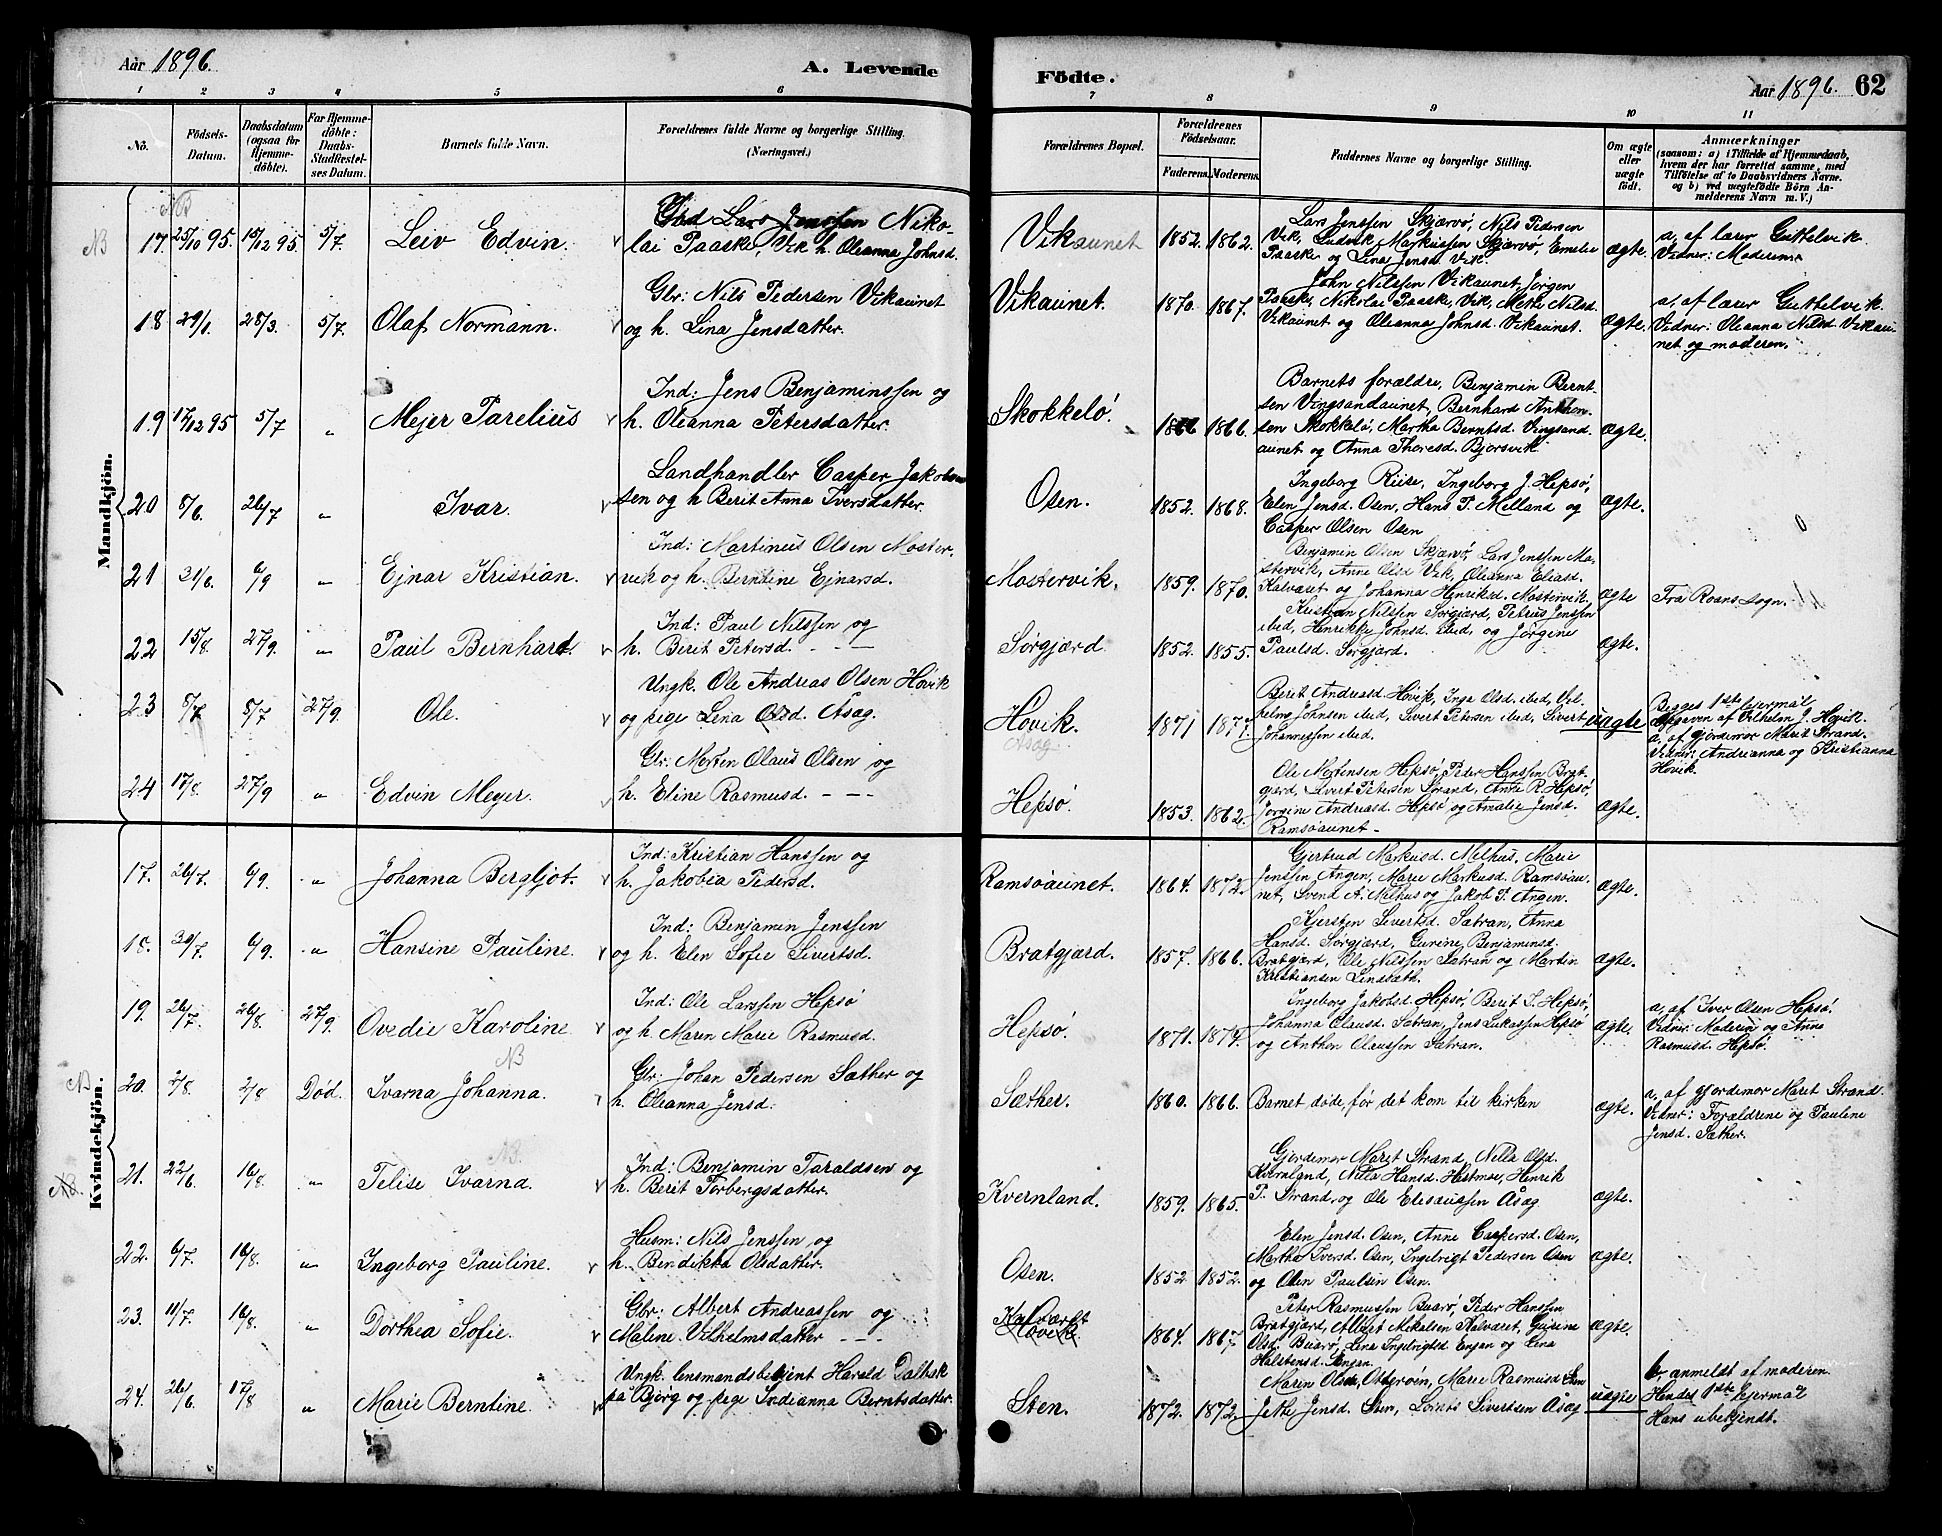 Aar 1896. A. Levende
Födte. Aar 1896. 62
1 2 3 4 5 6
7 8 9 10 11
No.
Födsels-
Datum.
Daabsdatum
(ogsaa for
Hjemme-
döbte).
For Hjemme-
döbte:
Daabs-
Stadfæstel-
ses Datum.
Barnets fulde Navn.
Forældrenes fulde Navne og borgerlige Stilling.
(Næringsvei.)
Forældrenes Bopæl.
Forældrenes
Födselsaar.
Faderens. Moderens.
Faddernes Navne og borgerlige Stilling.
Om ægte
eller
uægte
födt.
Anmærkninger
(saasom: a) i Tilfælde af Hjemmedaab,
hvem der har forrettet samme, med
Tilföielse af to Daabsvidners Navne,
og b) ved uægtefödte Börn An-
melderens Navn m. V.)
Mandkjön.
NB
17. 25/10 95. 15/12 95. 5/7. Leiv Edvin.
Gbd Lars Jenssen Niko-
lai Paaske, Vik h. Oleanna Johnsd.
Vikaunet 1852. 1862.
Lars Jenssen Skjærvö, Nils Pedersen
Vik, Ludvik Markussen Skjærvö, Emelie
Paaske og Lina Jensd. Vik.
ægte.
a, af lærer Guttelvik.
Vidner: Moderen
18 29/1. 28/3. 5/7. Olaf Normann.
Gbr: Nils Pedersen Vikaunet
og h. Lina Jensdatter.
Vikaunet. 1870. 1867.
John Nilssen Vikaunet, Jörgen
Paaske, Nikolai Paaske, Vik, Mette Nilsd.
Vikaunet og Oleanna Johnsd. Vikaunet.
ægte.
a, af lærer Guttelvik.
Vidner: Oleanna Nilsd. Vikau-
net og moderen.
19. 17/12 95 5/7 " Mejer Parelius
Ind: Jens Benjaminssen og
h. Oleanna Petersdatter.
Skokkelö. 1866 1866.
Barnets forældre, Benjamin Bernt-
sen Vingsandaunet, Bernhard Anthon-
sen Skokkelö, Martha Berntsd. Vingsand-
aunet og Anna Thoresd. Bjorsvik.
ægte.
20 8/6. 26/7 " Ivar.
Landhandler Casper Jakobsen
sen og h Berit Anna Iversdatter.
Osen. 1852. 1868.
Ingeborg Riise, Ingeborg J. Hepsö,
Elen Jensd. Osen, Hans P. Melland og
Casper Olsen Osen
ægte.
21 31/6. 6/9 " Ejnar Kristian.
Ind: Martinus Olsen Moster-
vik og h. Berntine Ejnarsd.
Mostervik. 1859. 1870.
Benjamin Olsen Skjærvö, Lars Jenssen Mo-
stervik, Anne Olsd Vik, Oleanna Eliasd.
Kalvaret og Johanna Henriksd. Mostervik.
ægte
Fra Roans sogn.
22 15/8. 27/9. " Paul Bernhard.
Ind: Paul Nilssen og
h. Berit Petersd. - - -
Sörgjærd. 1852. 1855.
Kristian Nilssen Sörgjærd, Petrus Jenssen
ibid, Henrikke Johnsd. ibid, og Jörgine
Paulsd. Sörgjærd.
ægte.
23 8/7 8/7 27/9. Ole.
Ungk. Ole Andreas Olsen Hövik
og pige Lina Olsd. Åsag.
Hövik. 1871 1877.
Åsag.
Berit Andreasd. Hövik, Inga Olsd. ibid, Vil-
helm Johnsen ibid, Sivert Petersen ibid, Sivert
Johannessen ibid.
uægte
Begges 1ste leiermål
Opgaven af Vilhelm J. Hövik.
a, af gjordemor Marit Strand.
Vidner: Andrianna og Kristianna
Hövik.
24 17/8. 27/9 " Edvin Meyer.
Gbr. Morten Olaus Olsen og
h. Eline Rasmusd. - - -
Hepsö. 1853. 1862.
Ole Mortensen Hepsö, Peder Hanssen Brat-
gjærd, Sivert Petersen Strand, Anne R. Hepsö,
Jörgine Andreasd. Hepsö og Amalie Jensd.
Ramsöaunet.
ægte.
Kvindekjön.
17. 26/7. 6/9. " Johanna Bergljot.
Ind: Kristian Hanssen og
h. Jakobia Pedersd.
Ramsöaunet. 1864. 1872.
Gjertrud Markusd. Melhus, Marie
Jenssen Angen, Marie Markusd. Ramsöau-
net, Svend A. Melhus og Jakob P. Angen.
ægte.
18. 30/7 6/9. " Hansine Pauline.
Ind: Benjamin Jenssen
og h. Elen Sofie Sivertsd.
Bratgjærd. 1857. 1866.
Kjersten Sivertsd. Sætran, Anna
Hansd. Sörgjærd, Gurine Benjaminsd.
Bratgjærd, Ole Nilssen Sætran og Martin
Kristiansen
ægte.
19. 26/7. 26/8. 27/9 Ovedie Karoline
Ind: Ole Larssen Hepsö
og h. Maren Marie Rasmusd.
Hepsö. 1871. 1874.
Ingeborg Jakobsd. Hepsö, Berit S. Hepsö,
Johanna Olausd. Sætran, Jens Lukassen Hepsö
og Anthon Olaussen Sætran.
ægte.
a, af Iver Olsen Hepsö.
Vidner: Moderen og Anna
Rasmusd. Hepsö.
NB
NB
20. 2/8. 2/8 Död. Ivarna Johanna.
Gbr: Johan Pedersen Sæther og
h. Oleanna Jensd.
Sæther. 1860. 1866.
Barnet döde, för det kom til kirken
ægte.
a, af gjordemor Maret Strand.
Vidner: Forældrene og Pauline
Jensd. Sæther.
NB.
NB.
21. 22/6 16/8. " Telise Ivarna.
Ind: Benjamin Taraldsen og
h. Berit Torbergsdatter.
Kvernland. 1859. 1865.
Gjordemor Maret Strand, Nella Olsd.
Kvernland, Nilla Hansd. Hestmoe, Henrik
P. Strand, og Ole Eliaussen Åsag
ægte.
22. 6/7. 16/8. " Ingeborg Pauline.
Husm: Nils Jenssen og
h. Bendikka Olsdatter.
Osen. 1852 1852.
Elen Jensd. Osen, Anne Caspersd. Osen,
Martha Iversd. Osen, Ingebrigt Pedersen Osen
og Olen Paulsen Osen.
ægte.
23. 11/7 16/8. " Dorthea Sofie.
Gbr: Albert Andreassen og
Maline Vilhelmsdatter - - -
Kalværet
Hövik. 1864. 1867
Peter Rasmussen Buarö, Peder Hanssen
Bratgjærd, Albert Mikalsen Kalværet, Gurina
Olsd. Buarö, Lina Ingebrigtsd Engan og Lina
Halstensd. Engan.
ægte.
24. 26/6. 17/8 " Marie Berntine.
Ungk. lensmandsbetjent Harald Dalbak
på Bjorg og pige Indianna Berntsdatter.
Sten. 1872. 1872.
Maren Olsd. Ostgröin, Marie Rasmusd Sten
Jethe Jensd. Sten, Sivertsen Åsag
uægte
b. anmeldt af moderen.
Hendes 1ste leiermål
Hans ubekjendt.